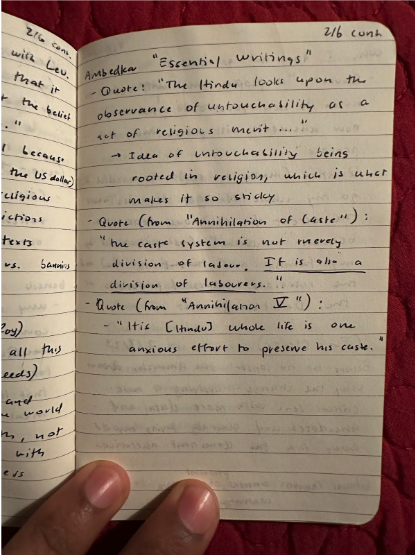 2/6 cont.
with Lev.
that it
the belief
."
because
the US dollar)
religious
ictions
texts
vs. bannics
all this
eeds)
and
world
m, not
with
ess
2/6 cont.
Ambedkar "Essential Writings"
- Quote: "The Hindu looks upon the
observance of untouchability as a
act of religious merit ...."
→ Idea of untouchability being
rooted in religion, which is what
makes it so sticky
- Quote (from "Annihilation of Caste"):
"the caste system is not merely
division of labour. It is also a
division of labourers."
- Quote (from "Annihilation V"):
- "His [Hindu] whole life is one
anxious effort to preserve his caste."